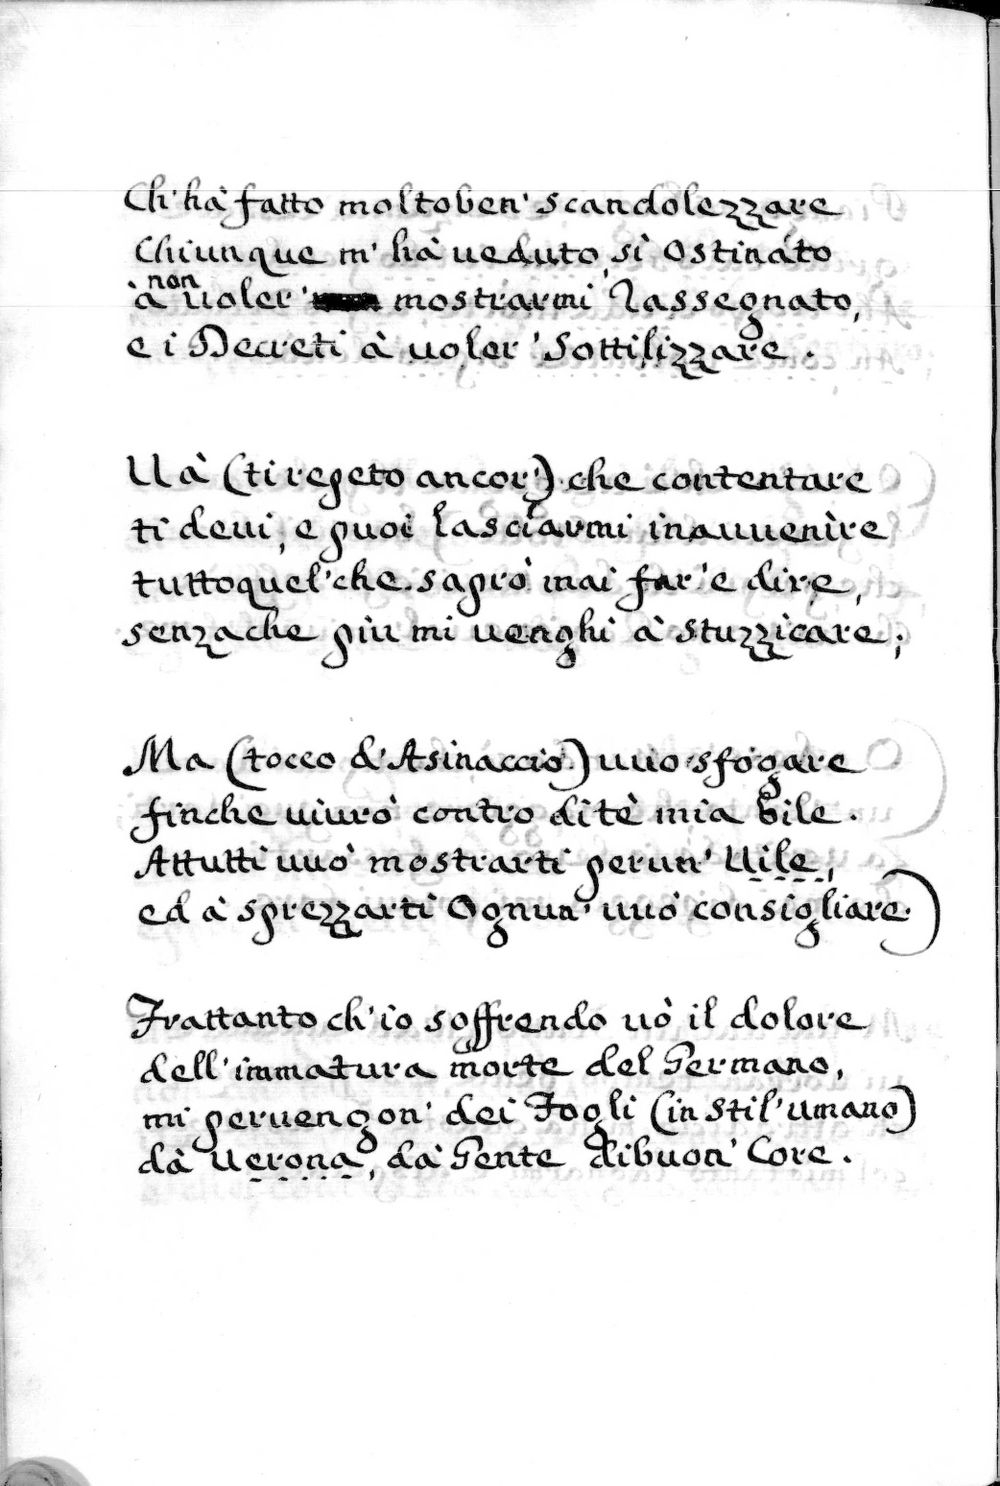 Ch' hà fatto moltoben' scandolezzare
Chiunque m' hà ueduto, sì Ostinàto
à non uoler' mostrarmi Rassegnato,
e i Decreti à uoler' Sottilizzare.
Uà (ti repeto ancor') che contentare
ti deui, e puoi lasciarmi inauuenìre
tuttoquel' che saprò mai far' e dire,
senzache più mi uenghi à stuzzicare;
Ma (tocco d' Asinaccio) uuò sfogare
finche uiurò contro di tè mia bile.
Attutti uuò mostrarti perun' Uile,
ed à sprezzarti Ognun' uuò consigliare.)
Frattanto ch' io soffrendo uò il dolore
dell' immatura morte del Germano,
mi peruengon' dei Fogli (in stil' umano)
dà Uerona, dà Gente dibuon' Core.